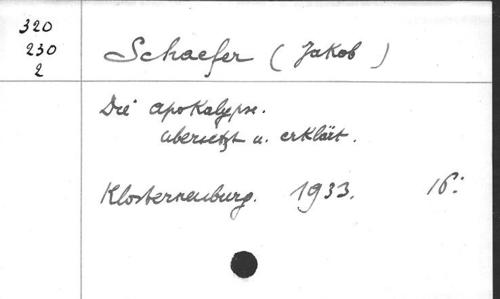 320
230
2
Schaefer (Jakob)
Die Apokalypse.
übersetzt u. erklärt.
Klosterneuburg. 1933. 16: